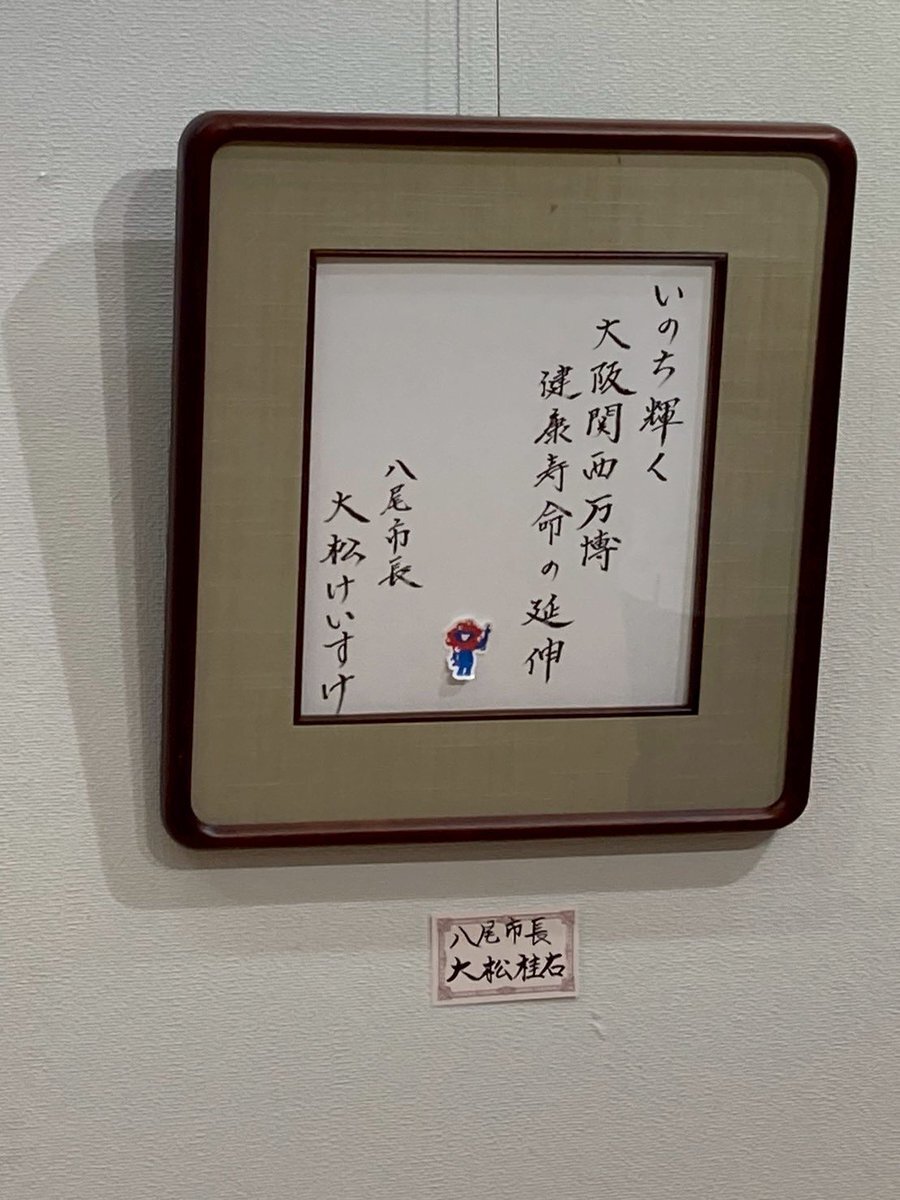 いのち輝く
大阪関西万博
健康寿命の延伸
八尾市長
大松けいすけ
八尾市長
大松桂右